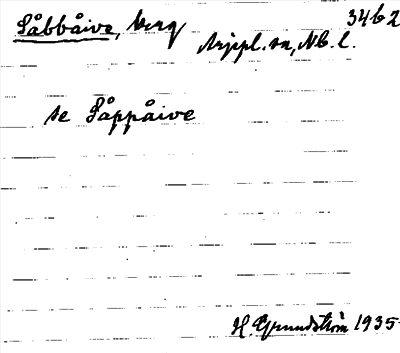 Såbbåive, berg 34b2
Arjepl. sn, Nb. l.
se Såppåive
H. Grundström 1935